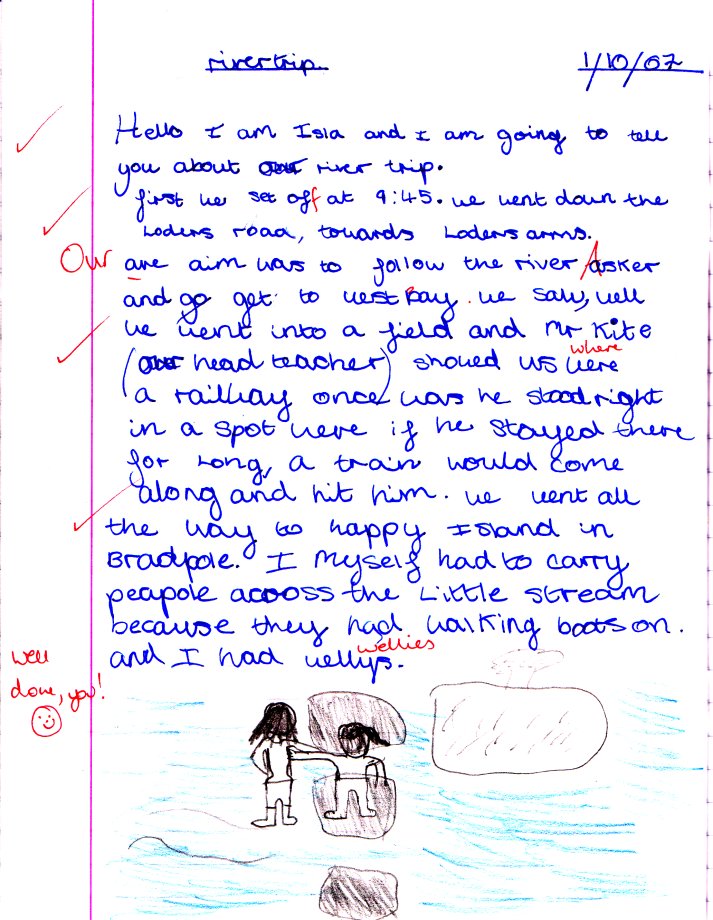 rivertrip 1/10/07
Hello I am Isla and I am going to tell
you about our river trip.
first we set off at 9:45. we went down the
Loders road, towards Loders arms.
Our
are aim was to follow the river Asker
and go get to west Bay. we saw, well
we went into a field and Mr Kite
(our head teacher) showed us were
where
a railway once was he stood right
in a spot were if he stayed there
for Long, a train would come
along and hit him. we went all
the way to happy Island in
Bradpole. I myself had to carry
peapole acooss the Little stream
because they had walking boots on.
wellies
and I had wellys.
well
done, you!